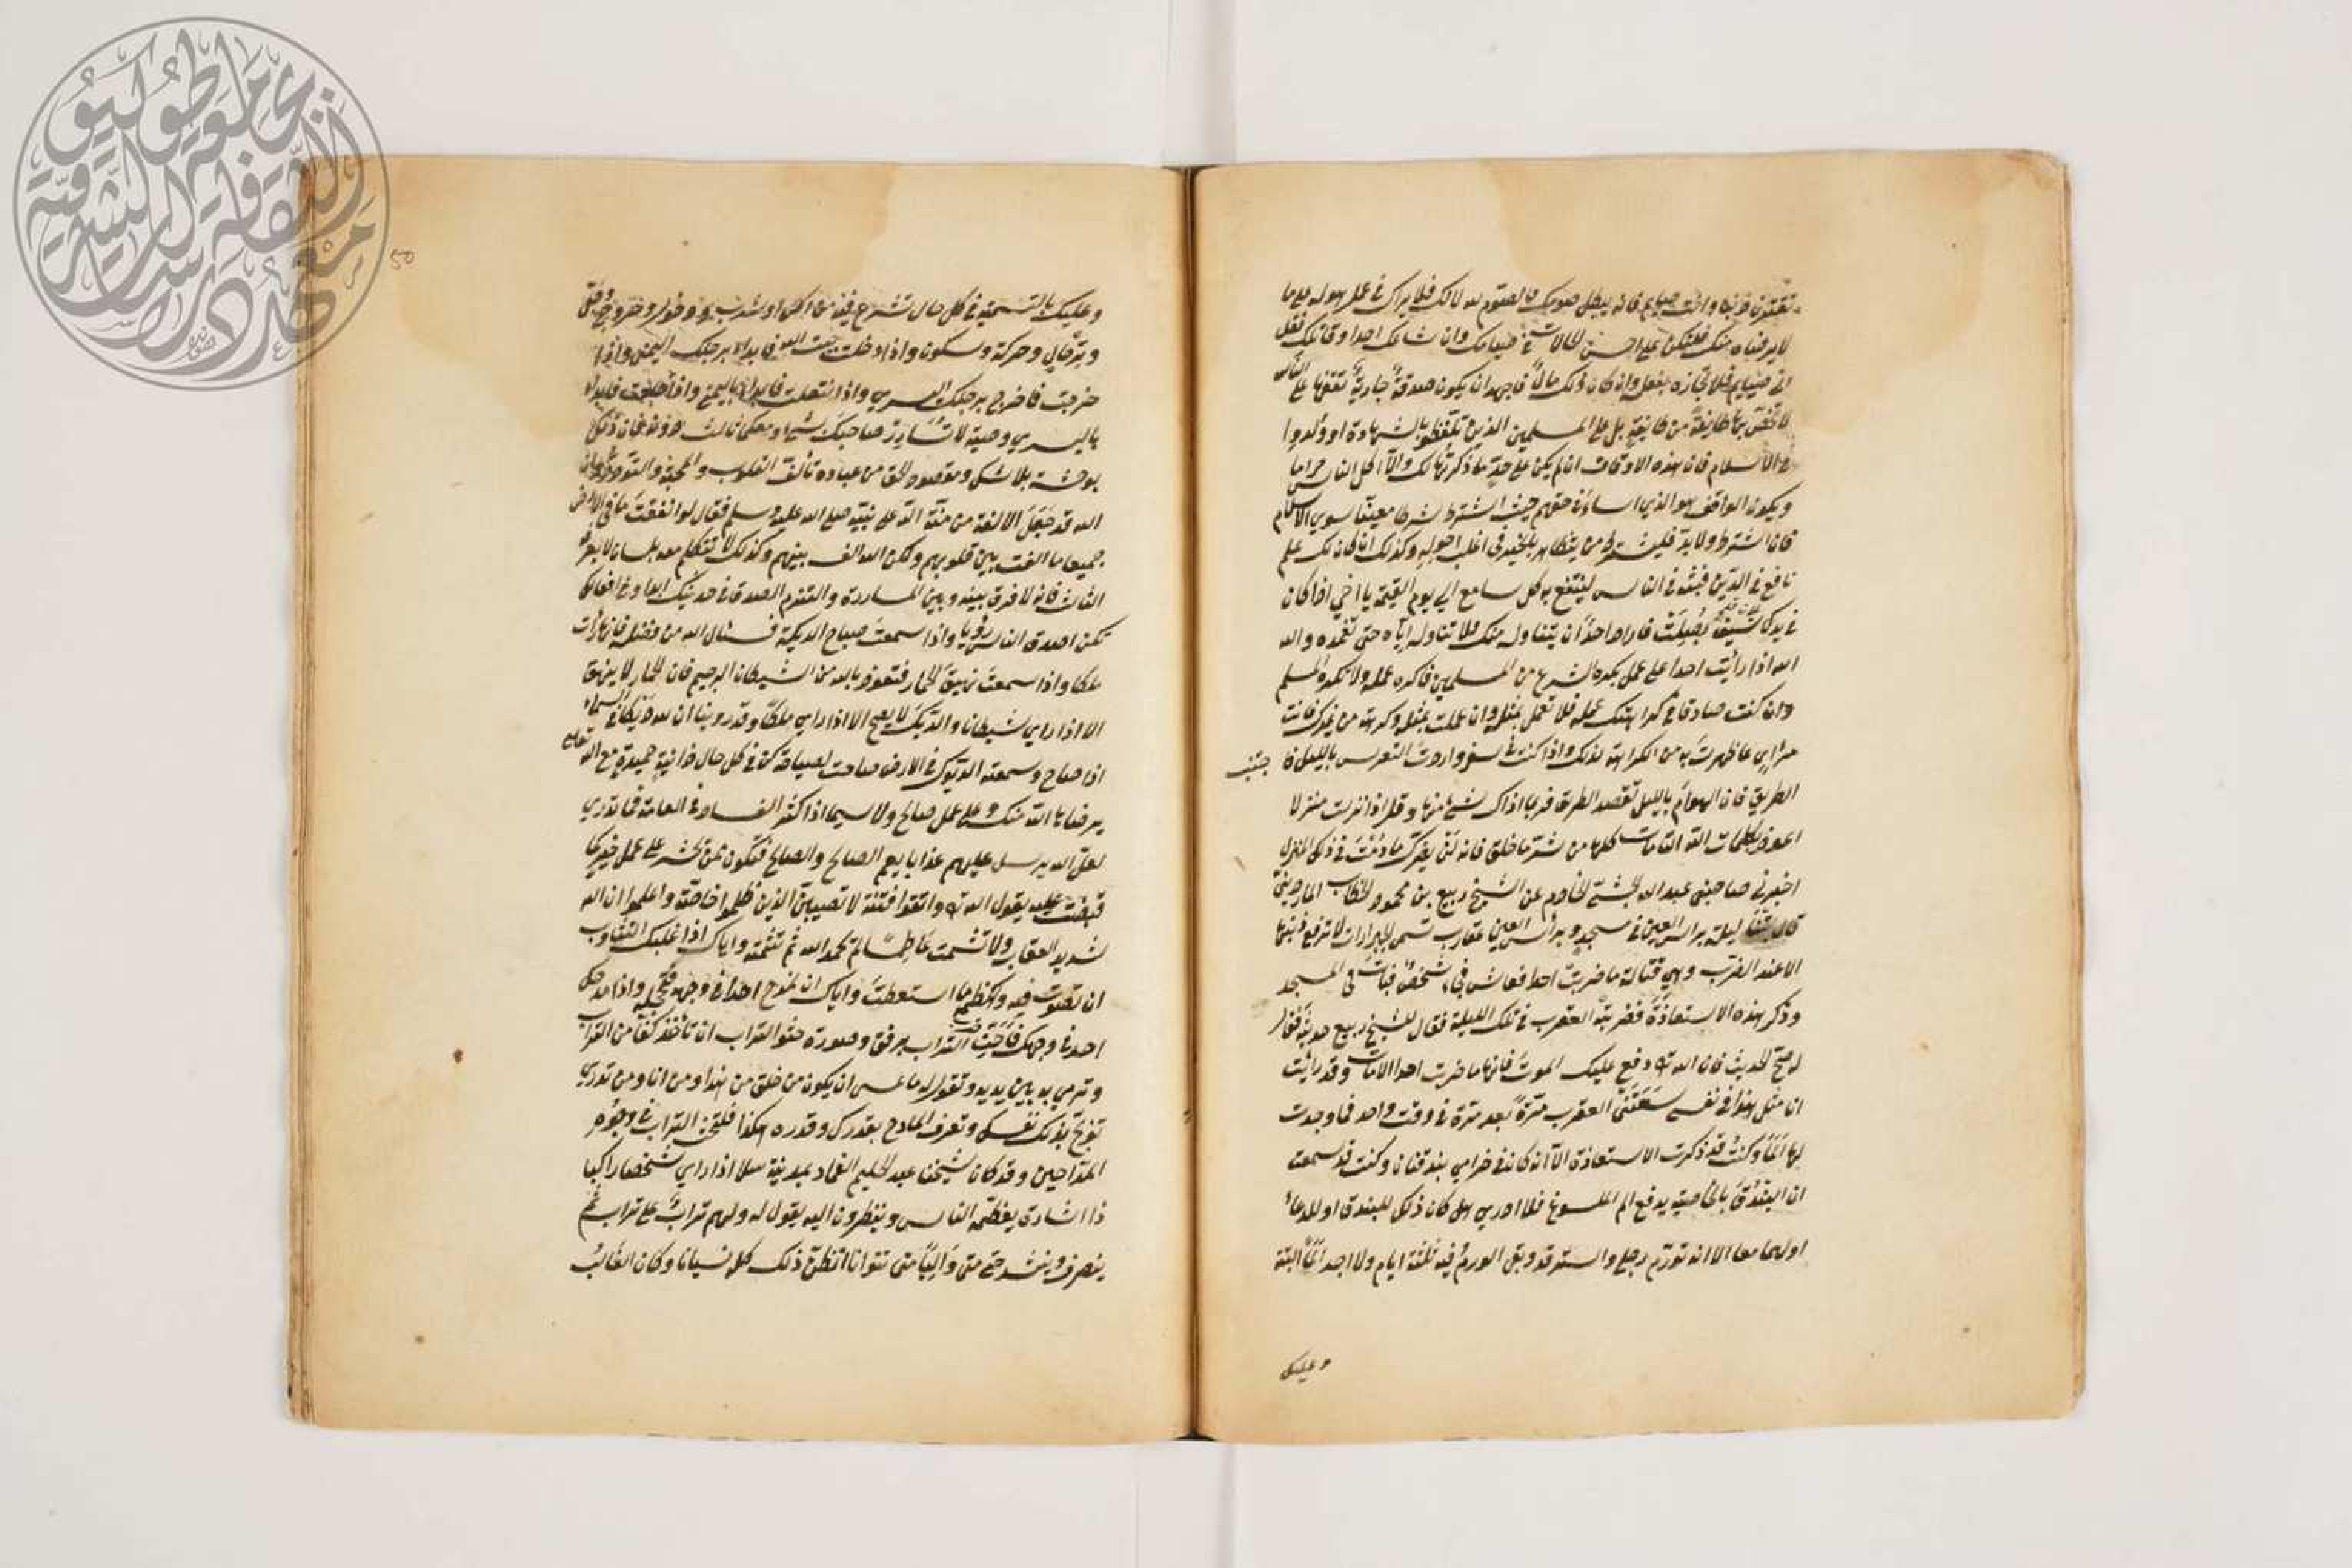 تقترن قرينا وانت صايم فانه يبطل صومك فالصوم لله لا لك فلا يراك في عمل هو له على ما
لا يرضاه منك فلتكن على احسن الحالات في صيامك وان شاتمك احد او قاتلك فقل
اني صايم فلا تجازه بفعله وان كان لك مال فاجهد ان يكون صدقة جارية تقفها على الناس
لا تخص بها طايفة من طايفة بل على المسلمين الذين تلفظوا بالشهادة او ولدوا
في الاسلام فان هذه الاوقاف ان لم يكن على حد ما ذكرته لك والا اكل الناس حراما
ويكون الواقف هو الذي اساء في حقهم حيث اشترط شرطا معينا سوي الاسلام
فان اشترط ولا بد فليشترط من يتظاهر بالخير في اغلب احواله وكذلك ان كان لك علم
نافع في الدين فبثه في الناس لينتفع به كل سامع الي يوم القيمة يا اخي اذا كان
في يدك سيف فاراد احد ان يتناوله منك فلا تناوله اياه حتي تغمده والله
الله اذا رأيت احدا على عمل يكره الشرع من المسلمين فاكره عمله ولا تكره المسلم
وان كنت صادقا في كراهتك عمله فلا تعمل بمثله وان عملت بمثله وكرهته من غيرك فانت
مرائي بما ظهرت به من الكراهة لذلك واذا كنت في سفر واردت التعريس بالليل فاجتنب
الطريق فان الهوام بالليل تقصد الطرق فربما اذاك شي منها وقل اذا نزلت منزلا
اعوذ بكلمات الله التامات كلها من شر ما خلق فانه لن يضرك ما دمت في ذلك المنزل
اخبرني صاحبنا عبد الله الحبشي الخادم عن الشيخ ربيع بن محمود الحطاب المارديني
قال بتنا ليلة براس العين في مسجد وبرأس العين عقارب تسمى الجرارات لا ترفع ذنبها
الا عند الضرب وهي قتالة ما ضربت احدا فعاش فجاء شخص فبات في المسجد
وذكر هذه الاستعاذة فضربته العقرب في تلك الليلة فقال للشيخ ربيع حديثه فقال
له صح الحديث فان الله دفع عليك الموت فانها ما ضربت احدا الا مات وقد رأيت
انا مثل هذا في نفسي لسعتني العقرب مرة بعد مرة في وقت واحد فما وجدت
لها الما وكنت قد ذكرت الاستعاذة الا انه كان في حزامي بندقتان وكنت قد سمعت
ان البندق بالخاصية يدفع الم الملسوع فلا ادري هل كان ذلك للبندق او للدعاء
او لهما معا الا انه تورم رجلي وبقى الورم فيه ثلثة ايام ولا اجد الما البتة
وعليك
50
وعليك بالتسمية في كل حال تشرع فيه من اكل او شرب ودخول وخروج وحل
وترحال وحركة وسكون واذا دخلت بيت الله فابدا برجلك اليمنى واذا
خرجت فاخرج برجلك اليسرى واذا انتعلت فابدا باليمنى واذا خلعت فابدا
باليسرى وصية لا تسارر صاحبك بشيء ومعكما ثالث دونه فان ذلك
يوحشه بلا شك ومقصود الحق من عباده تألف القلوب والمحبة والتودد وان
الله قد جعل الالفة من منة الله على نبيه صلى الله عليه وسلم فقال لو انفقت ما في الارض
جميعا ما الفت بين قلوبهم ولكن الله الف بينهم وكذلك لا تتكلم معه بلسان لا يعرفه
الثالث فانه لا فرق بينه وبين المساررة والتزم الصدق في حديثك ابدا وفي افعالك
تكن اصدق الناس رؤيا واذا سمعت صياح الديكة فسئل الله من فضله فانها رأت
ملكا واذا سمعت نهيق الحمار فتعوذ بالله من الشيطان الرجيم فان الحمار لا ينهق
الا اذا راي شيطانا والديك لا يصيح الا اذا راي ملكا وقد روينا ان لله ديكا في السماء
اذا صاح وسمعته الديوك في الارض صاحت لصياحه كن في كل حال ذا نية حميدة مع الله تعالى
يرضاها الله منك وعلى عمل صالح ولا سيما اذا كثر الفساد في العامة فما تدري
لعل الله يرسل عليهم عذابا يعم الصالح والطالح فتكون ممن يحشر على عمل خير كما
قبضت عليه يقول الله واتقوا فتنة لا تصيبن الذين ظلموا خاصة واعلموا ان الله
شديد العقاب ولا تشمت عاطسا لم يحمد الله ثم تشمته واياك اذا غلبك التثاوب
ان تصوت فيه واكظم ما استعطت واياك ان تمدح احدا في وجهه فتخجله واذا مدحك
احد في وجهك فاحث التراب برفق وصورة حثو التراب ان تأخذ كفا من التراب
وترمي به بين يديه وتقول له ما عسى ان يكون من خلق من هذا ومن انا ومن قدري
توبخ بذلك نفسك وتعرف المادح بقدرك وقدره هكذا فليحث التراب في وجوه
المداحين وقد كان شيخنا عبد الحليم الغماد بمدينة سلا اذا راي شخصا راكبا
ذا اشارة يعظمه الناس وينظرون اليه يقول له ولهم تراب على تراب ثم
ينصرف وينشد حتى متى والى متى تتوانى اتظن ذلك كله نسيانا وكان الغالب